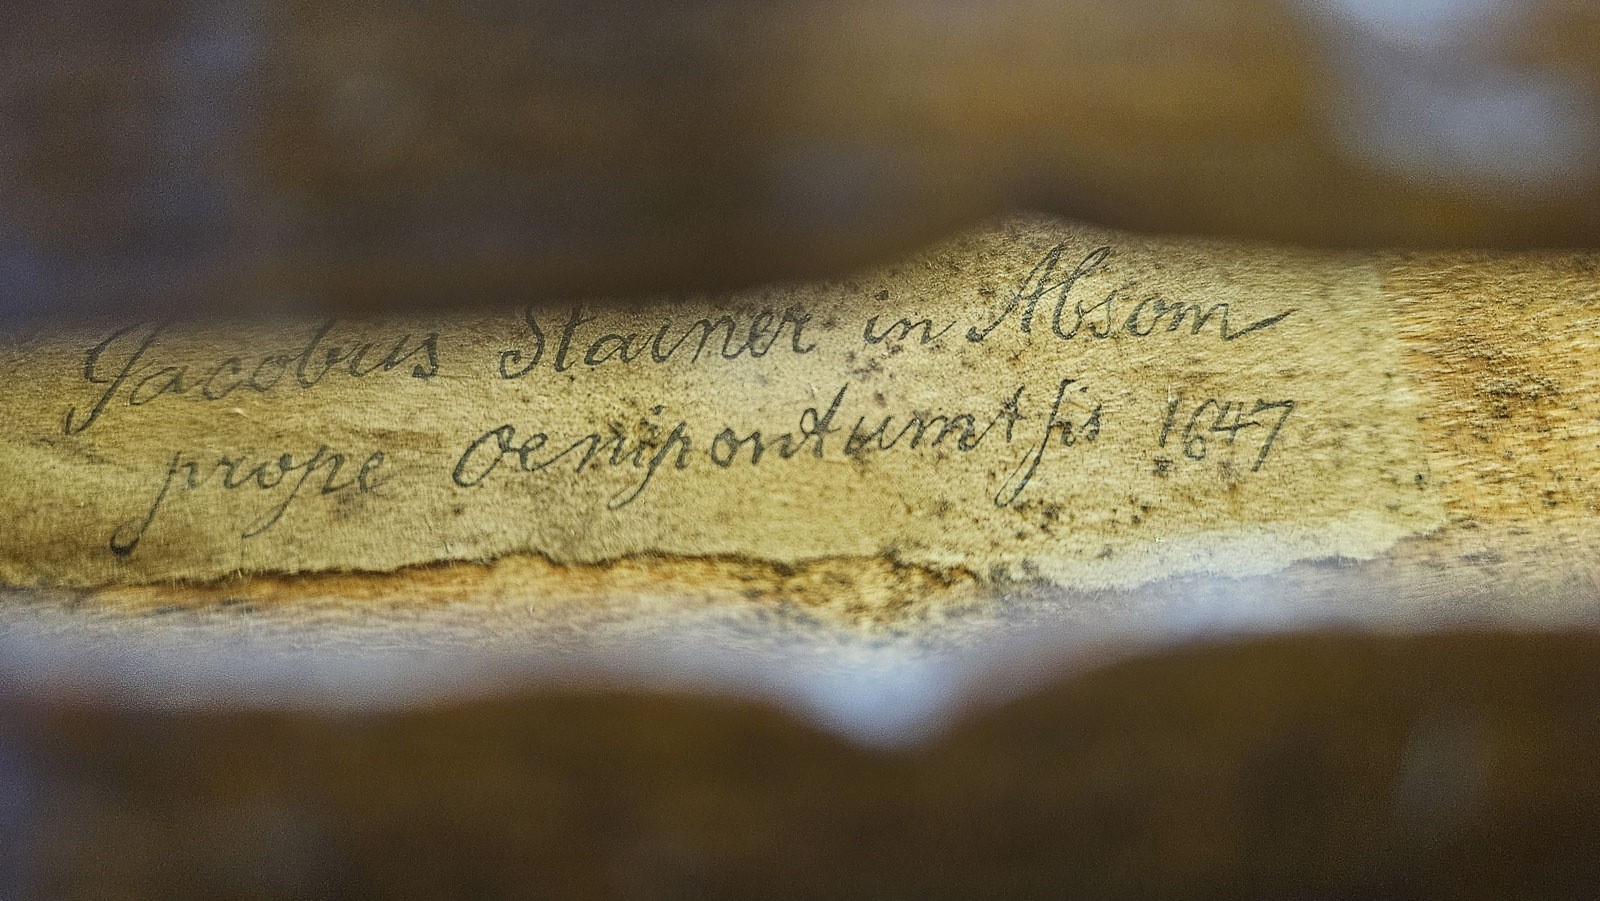 Jacobus Stainer in Absom
prope Oenipontum fis 1647